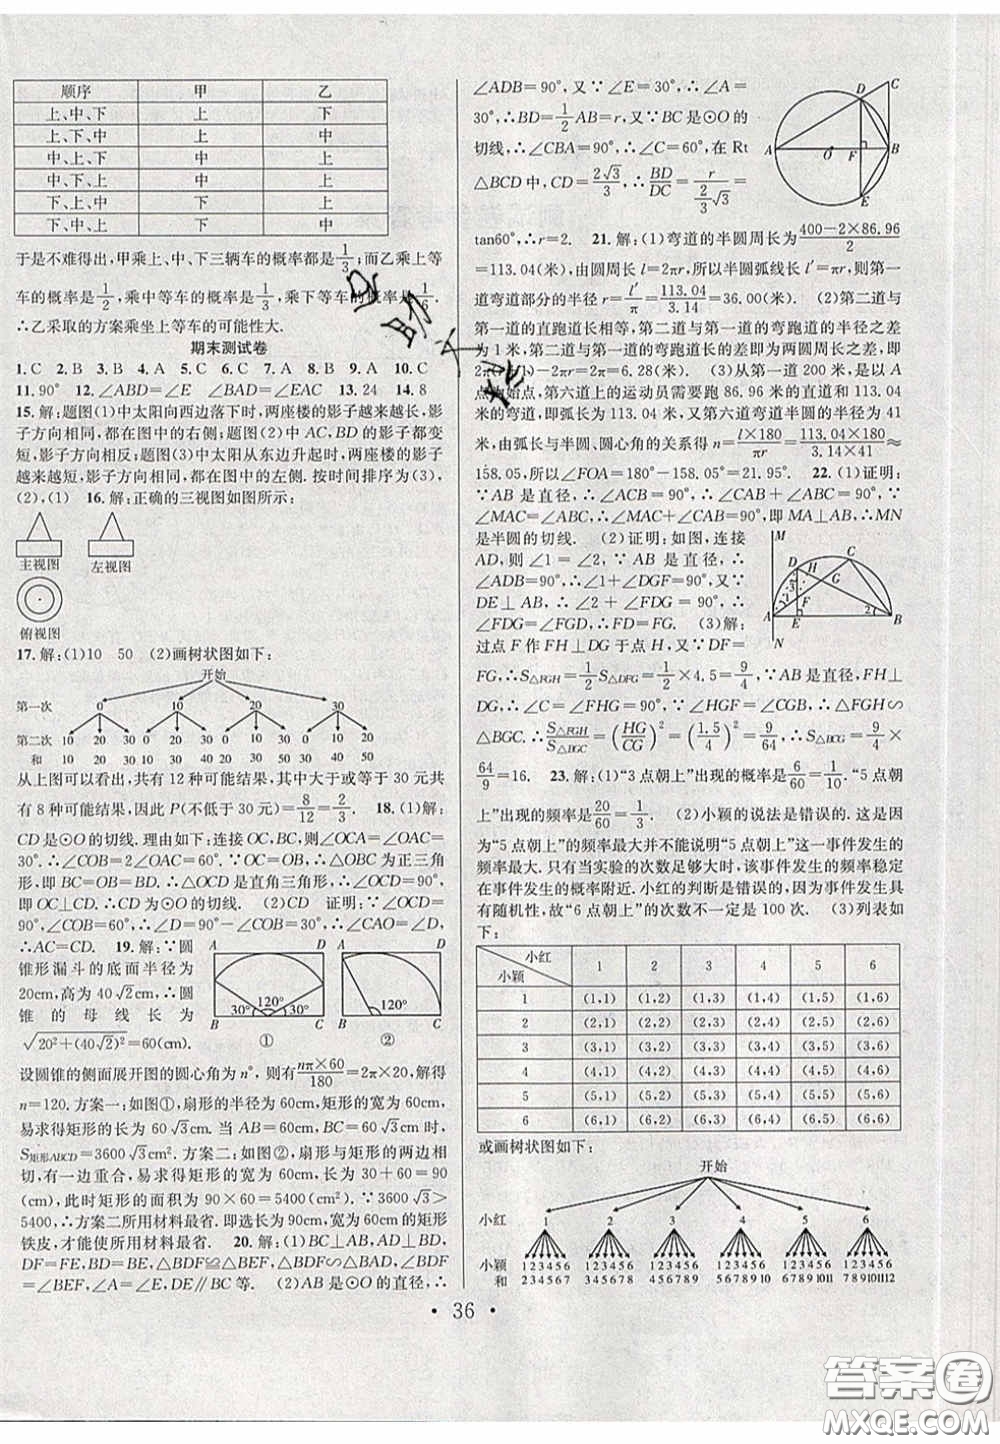 顺序 甲 乙
上、中、下 上 下
上、下、中 上 中
中、上、下 中 上
中、下、上 中 上
下、上、中 下 上
下、中、上 下 中
于是不难得出,甲乘上、中、下三辆车的概率都是1/3;而乙乘上等
车的概率是1/2,乘中等车的概率是1/3,乘下等车的概率是1/6.
∴乙采取的方案乘坐上等车的可能性大.
期末测试卷
1.C 2.B 3.B 4.A 5.C 6.C 7.B 8.A 9.A 10.C
11.90° 12.∠ABD=∠E ∠BAD=∠EAC 13.24 14.8
15.解:题图(1)中太阳向西边落下时,两座楼的影子越来越长,影
子方向相同,都在图中的右侧;题图(2)中AC,BD的影子都变
短,影子方向相同;题图(3)中太阳从东边升起时,两座楼的影子
越来越短,影子方向相同,都在图中的左侧.按时间排序为(3),
(2),(1) 16.解:正确的三视图如图所示:
主视图 左视图
俯视图
17.解:(1)10 50 (2)画树状图如下:
开始
第一次 0 10 20 30
第二次 10 20 30 0 20 30 0 10 30 0 10 20
和 10 20 30 10 30 40 20 30 50 30 40 50
从上图可以看出,共有12种可能结果,其中大于或等于30元共
有8种可能结果,因此P(不低于30元)=8/12=2/3. 18.(1)解:
CD是⊙O的切线.理由如下:连接OC,BC,则∠OCA=∠OAC=
30°,∴∠COB=2∠OAC=60°.∵OC=OB,∴△OBC为正三角
形,即BC=OB=BD.∴△OCD是直角三角形,∴∠OCD=90°,
即OC⊥CD.∴CD为⊙O的切线. (2)CD 证明:∵∠OCD=
90°,∠COB=60°,∴∠D=90°-∠COB=30°,∴∠CAO=∠D,
∴AC=CD. 19.解:∵圆
锥形漏斗的底面半径为
20cm,高为40√2cm,∴圆
锥的母线长为
√(20²+(40√2)²)=60(cm).
A D 120° 30° 30° B C ①
A D 120° B C ②
设圆锥的侧面展开图的圆心角为n°,则有nπ×60/180=2π×20,解得
n=120.方案一:如图①,扇形的半径为60cm,矩形的宽为60cm,
易求得矩形的长为60√3cm.当AB=60cm,BC=60√3cm时,
S矩形ABCD=3600√3cm².方案二:如图②,扇形与矩形的两边相
切,有一边重合,易求得矩形的宽为60cm,长为30+60=90
(cm),此时矩形的面积为90×60=5400(cm²).∵3600√3>
5400,∴方案二所用材料最省.即选长为90cm,宽为60cm的矩形
铁皮,才能使所用材料最省. 20.解:(1)BC⊥AB,AD⊥BD,
DF=FE,BD=BE,△BDF≌△BEF,△BDF∽△BAD,∠BDF
=∠BEF,∠A=∠E,DE∥BC等. (2)AB是⊙O的直径,∴
∠ADB=90°,又∵∠E=30°,∴∠A=
30°,∴BD=1/2AB=r,又∵BC是⊙O的
切线,∴∠CBA=90°,∴∠C=60°,在Rt
△BCD中,CD=2√3/3,∴BD/DC=r/(2/3√3)=
D C A O F B E
tan60°,∴r=2. 21.解:(1)弯道的半圆周长为(400-2×86.96)/2
=113.04(米),由圆周长l=2πr,所以半圆弧线长l′=πr,则第一
道弯道部分的半径r=l′/π=113.04/3.14=36.00(米). (2)第二道与
第一道的直跑道长相等,第二道与第一道的弯跑道的半径之差
为1米,第二道与第一道的弯跑道长的差即为两圆周长之差,即
2π(r+1)-2πr=2π=6.28(米). (3)从第一道200米,是以A
点为始点,第六道上的运动员需要跑86.96米的直道和113.04米
的弯道,即弧长为113.04米,又∵第六道弯道半圆的半径为41
米,由弧长与半圆、圆心角的关系得n=l×180/πr=113.04×180/3.14×41≈
158.05,所以∠FOA=180°-158.05°=21.95°. 22.(1)证明:
∵AB是直径,∴∠ACB=90°,∴∠CAB+∠ABC=90°,又∵
∠MAC=∠ABC,∴∠MAC+∠CAB=90°,即MA⊥AB,∴MN
是半圆的切线. (2)证明:如图,连接
AD,则∠1=∠2,∵AB是直径,∴
∠ADB=90°,∴∠1+∠DGF=90°,又∵
DE⊥AB,∴∠2+∠FDG=90°,∴
∠FDG=∠FGD,∴FD=FG. (3)解:
过点F作FH⊥DG于点H,又∵DF=
M D H C G 3 1 F 2 A E B N
FG,∴S△FGH=1/2S△DFG=1/2×4.5=9/4,∵AB是直径,FH⊥
DG,∴∠C=∠FHG=90°,∵∠HGF=∠CGB,∴△FGH∽
△BGC.∴S△FGH/S△BGC=(HG/CG)²=(1.5/4)²=9/64,∴S△BCG=9/4×
64/9=16. 23.解:(1)“3点朝上”出现的概率是6/60=1/10.“5点朝
上”出现的频率是20/60=1/3. (2)小颖的说法是错误的.这是因
为“5点朝上”的频率最大并不能说明“5点朝上”这一事件发生的
频率最大.只有当实验的次数足够大时,该事件发生的频率稳定
在事件发生的概率附近.小红的判断是错误的,因为事件发生具
有随机性,故“6点朝上”的次数不一定是100次. (3)列表如
下:
小红 小颖 1 2 3 4 5 6
1 (1,1) (1,2) (1,3) (1,4) (1,5) (1,6)
2 (2,1) (2,2) (2,3) (2,4) (2,5) (2,6)
3 (3,1) (3,2) (3,3) (3,4) (3,5) (3,6)
4 (4,1) (4,2) (4,3) (4,4) (4,5) (4,6)
5 (5,1) (5,2) (5,3) (5,4) (5,5) (5,6)
6 (6,1) (6,2) (6,3) (6,4) (6,5) (6,6)
或画树状图如下:
开始
小红 1 2 3 4 5 6
小颖 123456 123456 123456 123456 123456 123456
和 234567 345678 456789 5678910 67891011 789101112
• 36 •
答案圈
MXQE.COM